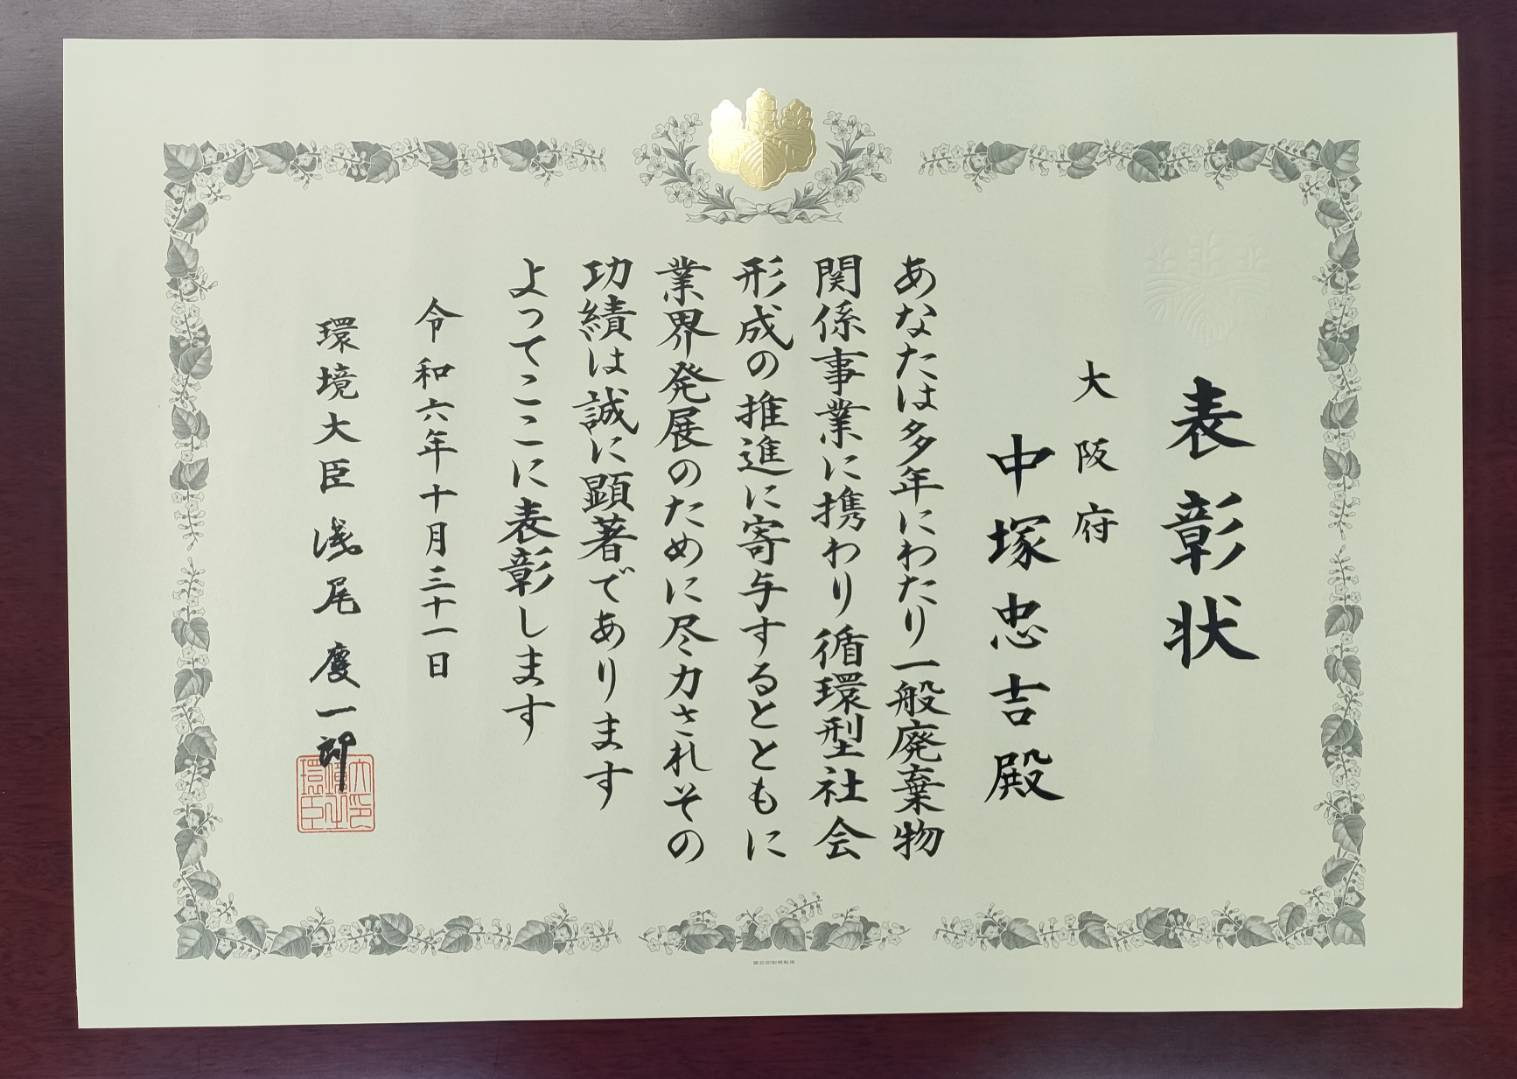 表彰状
大阪府
中塚忠吉殿
あなたは多年にわたり一般廃棄物
関係事業に携わり循環型社会
形成の推進に寄与するとともに
業界発展のために尽力されその
功績は誠に顕著であります
よってここに表彰します
令和六年十月三十一日
環境大臣 浅尾慶一郎